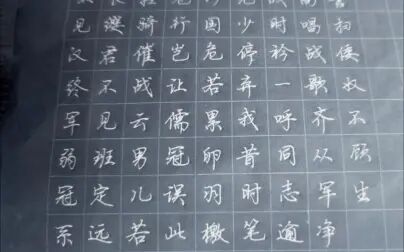 见缨骑行国少时唱扫
汉君催岂危停衿战倭
终不战让若弃一歌奴
军见云儒累我呼齐不
弱班男冠卵昔同众顾
冠定儿误羽时志军生
系远若此檄笔逾净